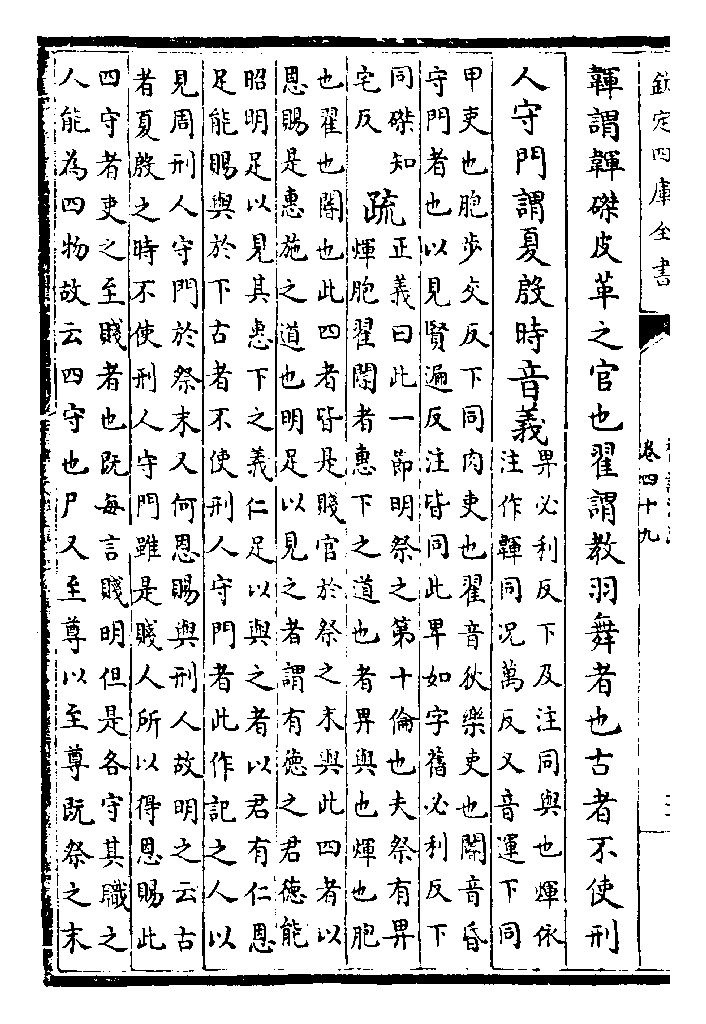 欽定四庫全書
卷四十九
韗謂韗磔皮革之官也翟謂教羽舞者也古者不使刑
人守門謂夏殷時音義
畀必利反下及注同與也煇依
注作韗同况萬反又音運下同
甲吏也胞步交反下同肉吏也翟音狄樂吏也閽音昏
守門者也以見賢遍反注皆同此畀如字舊必利反下
同磔知
宅反
疏
正義曰此一節明祭之第十倫也夫祭有畀
煇胞翟閽者惠下之道也者畀與也煇也胞
也翟也閽也此四者皆是賤官於祭之末與此四者以
恩賜是惠施之道也明足以見之者謂有德之君德能
昭明足以見其惠下之義仁足以與之者以君有仁恩
足能賜與於下古者不使刑人守門者此作記之人以
見周刑人守門於祭末又何恩賜與刑人故明之云古
者夏殷之時不使刑人守門雖是賤人所以得恩賜此
四守者吏之至賤者也既每言賤明但是各守其職之
人能為四物故云四守也尸又至尊以至尊既祭之末